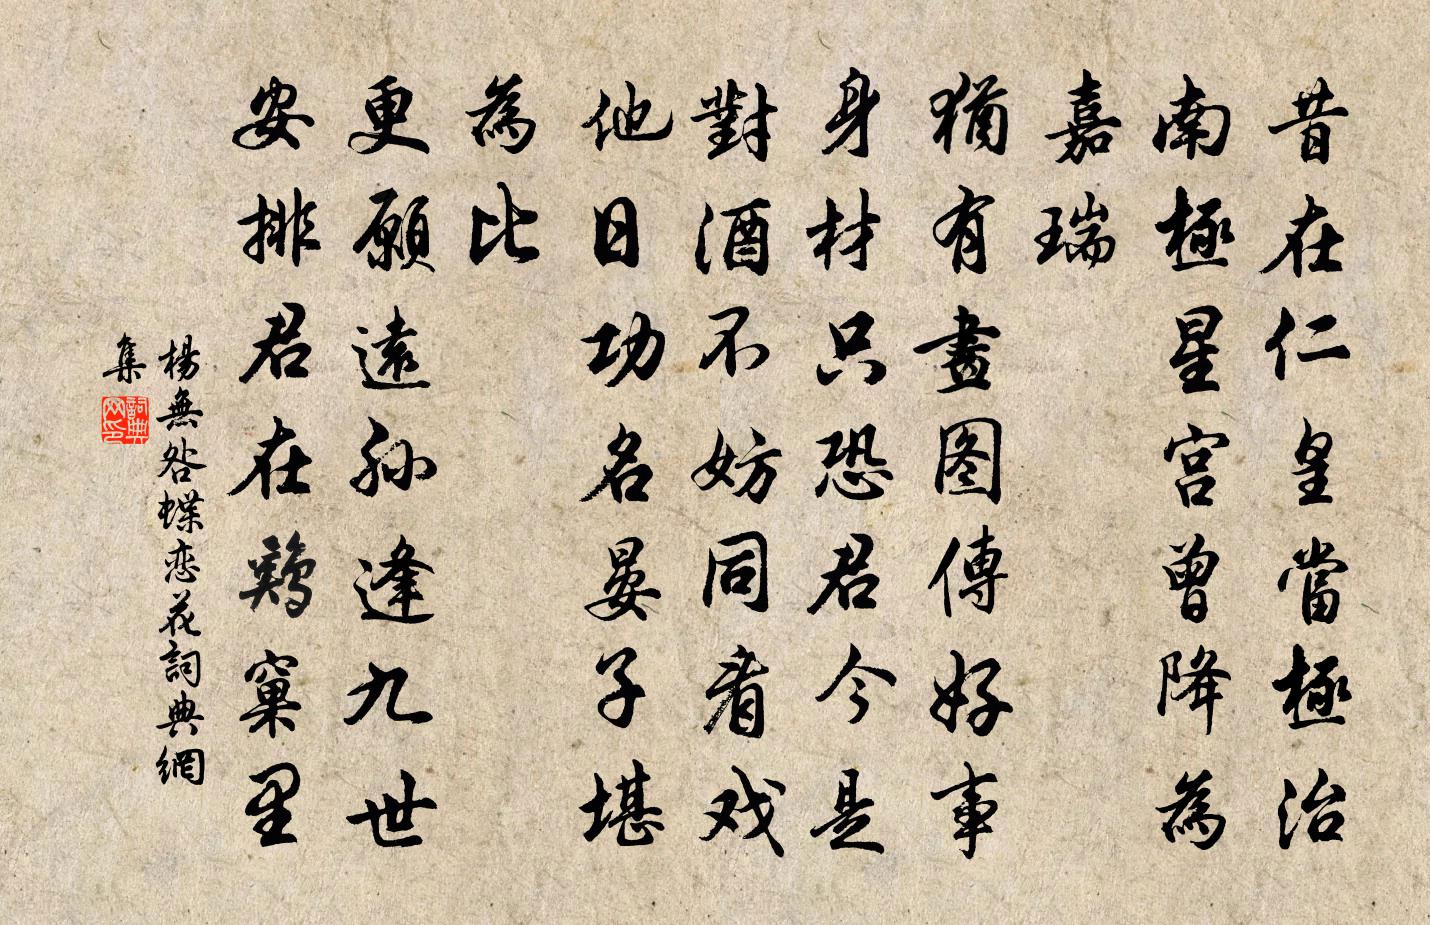 昔在仁皇當極治
南極星宮曾降為
嘉瑞
猶有畫图傳好事
身材只恐君今是
對酒不妨同看戏
他日功名晏子堪
為比
更願遠孙逢九世
安排君在鷄窠里
楊無咎蝶恋花詞典網
集
詞典網印